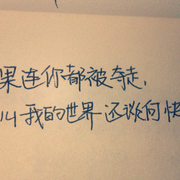 果连你都被夺走,
叫我的世界还谈何快